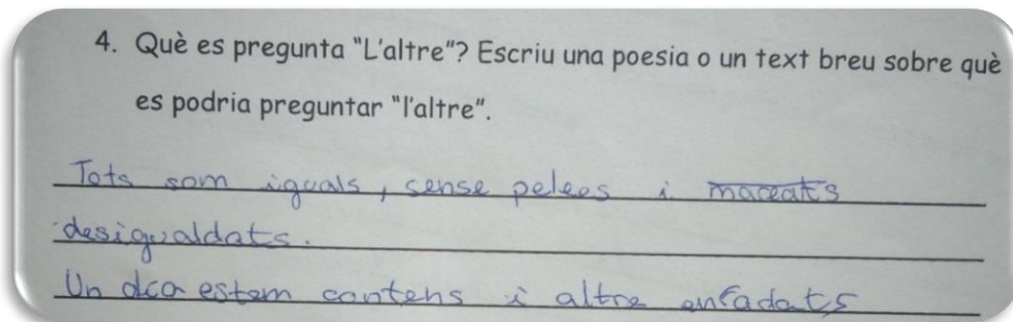 4. Què es pregunta "L'altre"? Escriu una poesia o un text breu sobre què
es podria preguntar "l'altre".
Tots som iguals, sense pelees i
desigualdats.
Un dia estem contens i altre enfadats